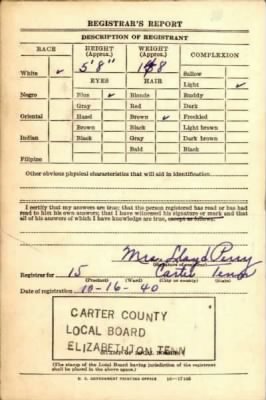 REGISTRAR'S REPORT
DESCRIPTION OF REGISTRANT
RACE HEIGHT (Approx.) WEIGHT (Approx.) COMPLEXION
White ✓ 5'8" 148 Sallow
EYES HAIR Light ✓
Negro Blue ✓ Blonde Ruddy
Gray Red Dark
Oriental Hazel Brown ✓ Freckled
Brown Black Light brown
Indian Black Gray Dark brown
Bald Black
Filipino
Other obvious physical characteristics that will aid in identification
I certify that my answers are true; that the person registered has read or has had
read to him his own answers; that I have witnessed his signature or mark and that
all of his answers of which I have knowledge are true, except as follows:
Mrs. Lloyd Perry
Registrar for 15 Carter Tenn
(Precinct) (Ward) (City or county) (State)
Date of registration 10-16-40
CARTER COUNTY
LOCAL BOARD
ELIZABETHTON, TENN
(The stamp of the Local Board having jurisdiction of the registrant
shall be placed in the above space.)
U. S. GOVERNMENT PRINTING OFFICE